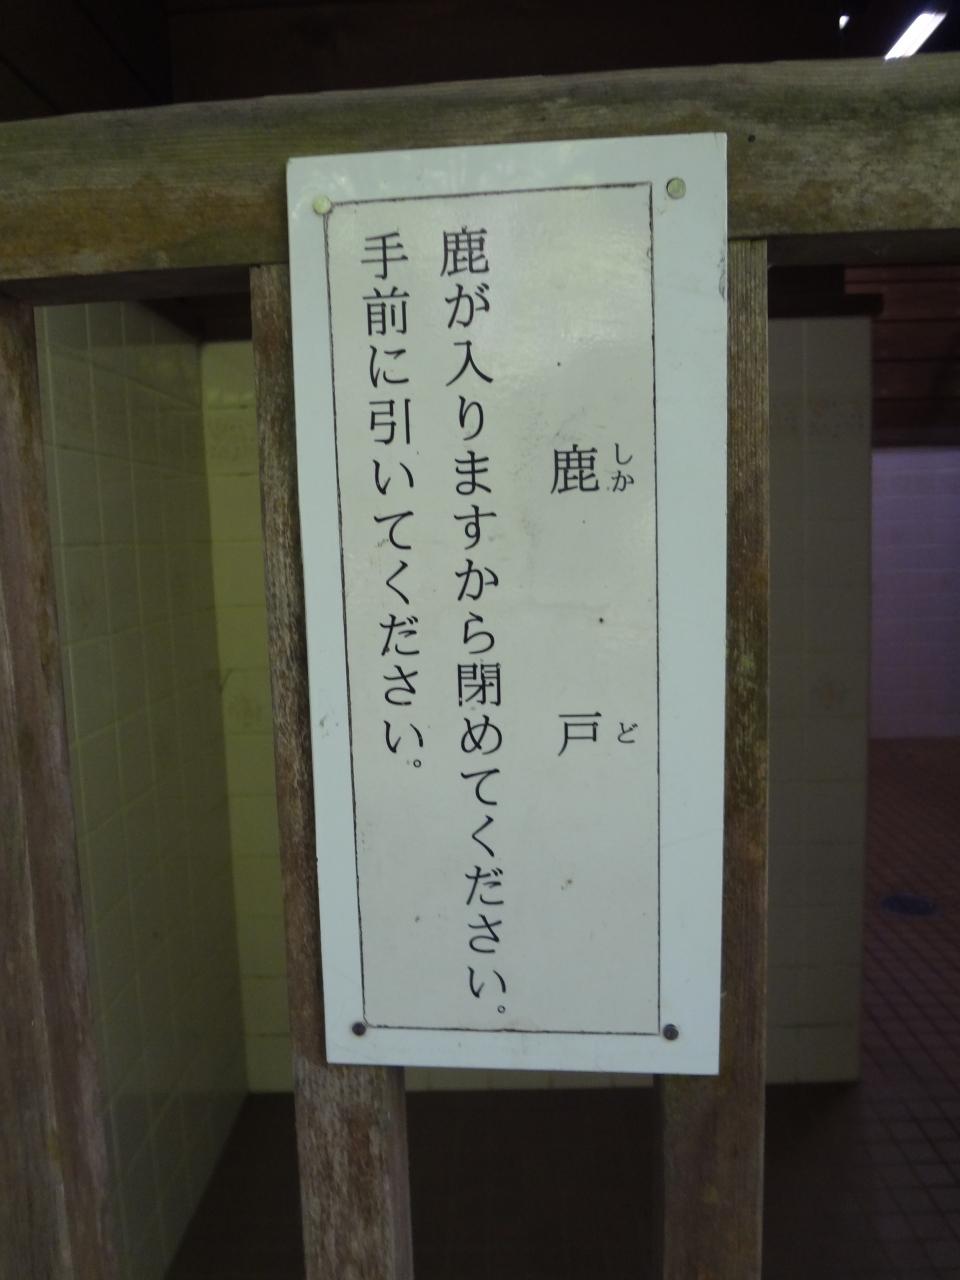 鹿戸
しかど
鹿が入りますから閉めてください。
手前に引いてください。